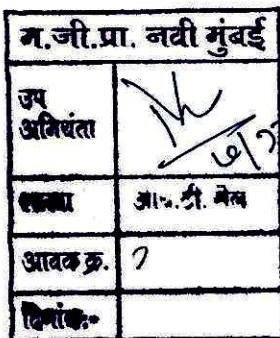 म.जी.प्रा. नवी मुंबई
उप
अभियंता
शाखा
आय.टी. सेल
आवक क्र.
दिनांक:-